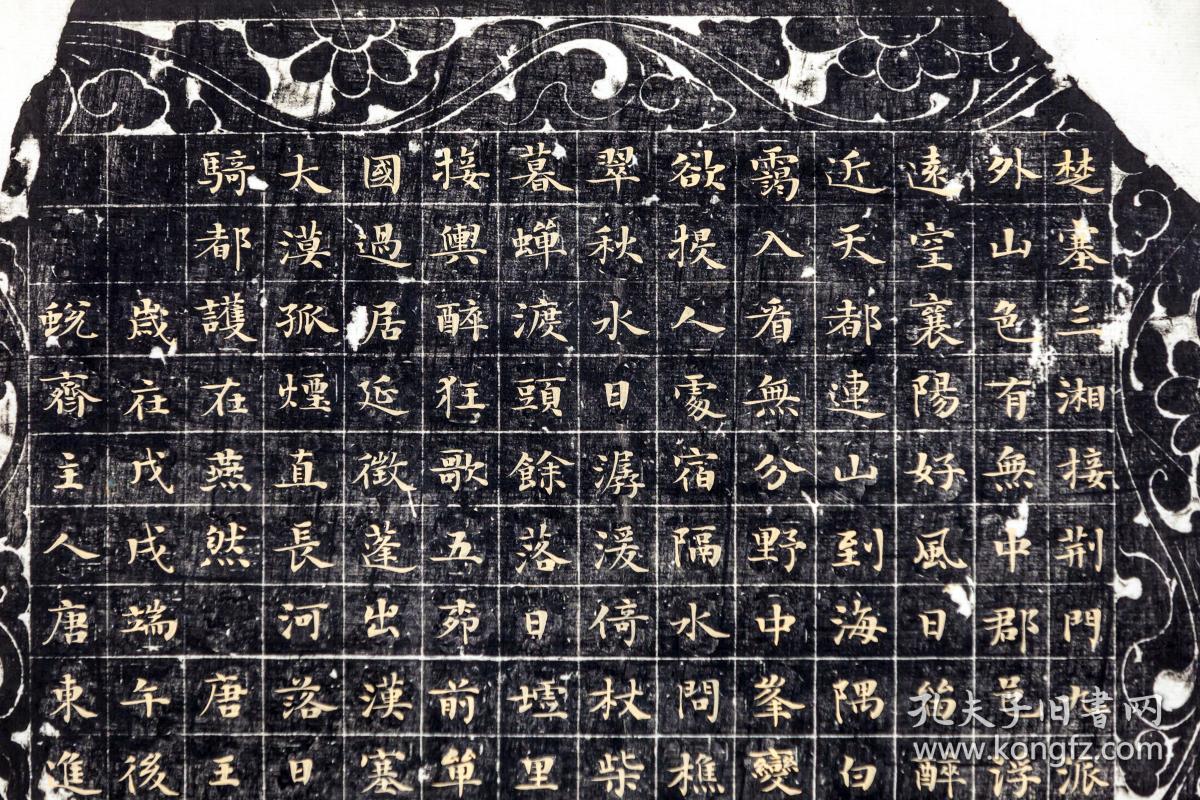 楚塞三湘接荆門九派
外山色有無中郡邑浮
遠空襄陽好風日留醉
近天都連山到海隅白
靄入看無分野中峯變
欲投人處宿隔水問樵
翠秋水日潺湲倚杖柴
暮蟬渡頭餘落日墟里
接輿醉狂歌五柳前單
國過居延徵蓬出漢塞
大漠孤煙直長河落日
騎都護在燕然 唐王
歲在戊戌端午後
蛻齋主人唐東進
孔夫子旧書网
www.kongfz.com